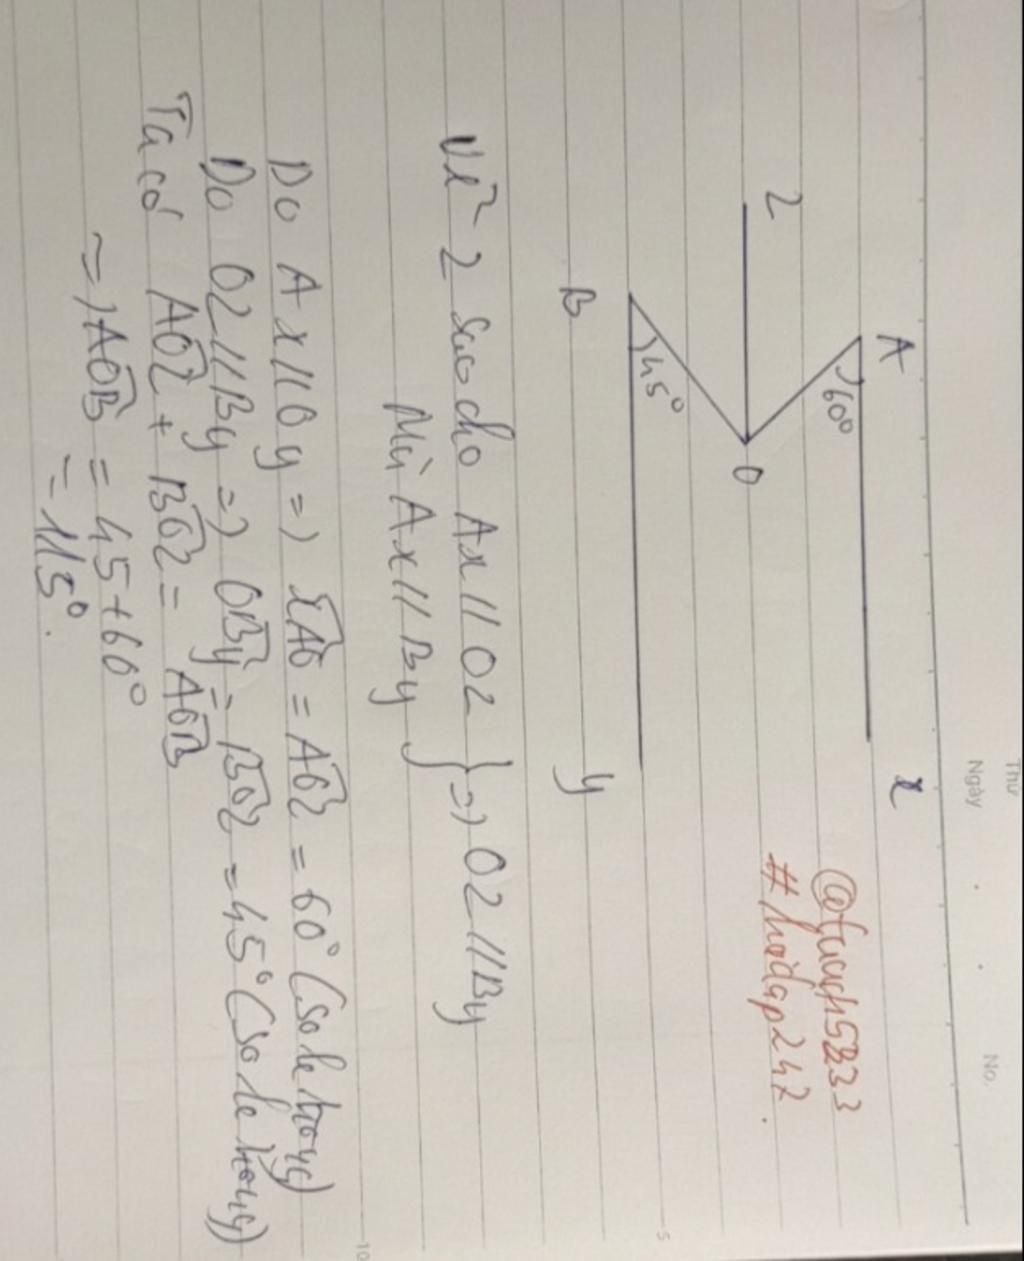 Thứ
Ngày
No.
A
x
60°
@fuach5233
#hoidap247.
z
O
45°
B
y
Vẽ z sao cho Ax // Oz } => Oz // By
Mà Ax // By
Do Ax // Oy => xAO = AOz = 60° (so le trong)
Do Oz // By => OBy = BOz = 45° (so le trong)
Ta có AOz + BOz = AOB
=> AOB = 45 + 60°
= 115°.
5
10